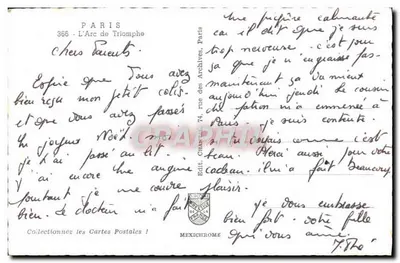 PARIS
366 - L'Arc de Triomphe
Chers Parents.
Espère que Vous avez
bien reçu mon petit colis
et que vous avez passés
un joyeux Noël. moi
je l'ai passé au lit.
J'ai encore une angine
pourtant je me couvre
bien. le docteur m'a fait
Collectionnez les Cartes Postales !
Edit. Chantal, 74, rue des Archives, Paris
MEXICHROME
une piqûre calmante
car il dit que je suis
trop nerveuse. c'est pour
ça que je n'engraisse pas.
maintenant ça va mieux
aujourd'hui jeudi le cousin
de m'a emmenée à
Paris. je suis contente.
si tu voyais comme c'est
beau. Merci aussi pour votre
cadeau. il m'a fait beaucoup
plaisir.
je vous embrasse
bien fort. votre fille
qui vous aime.